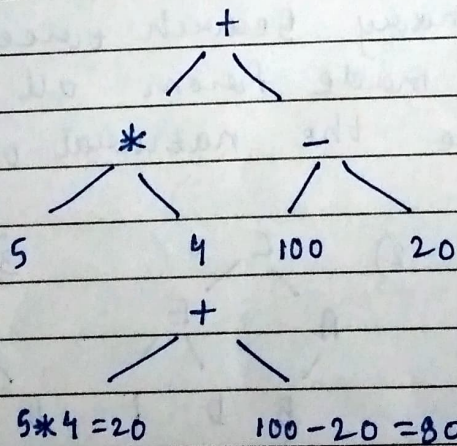 +
* -
5 4 100 20
+
5*4=20 100-20=80